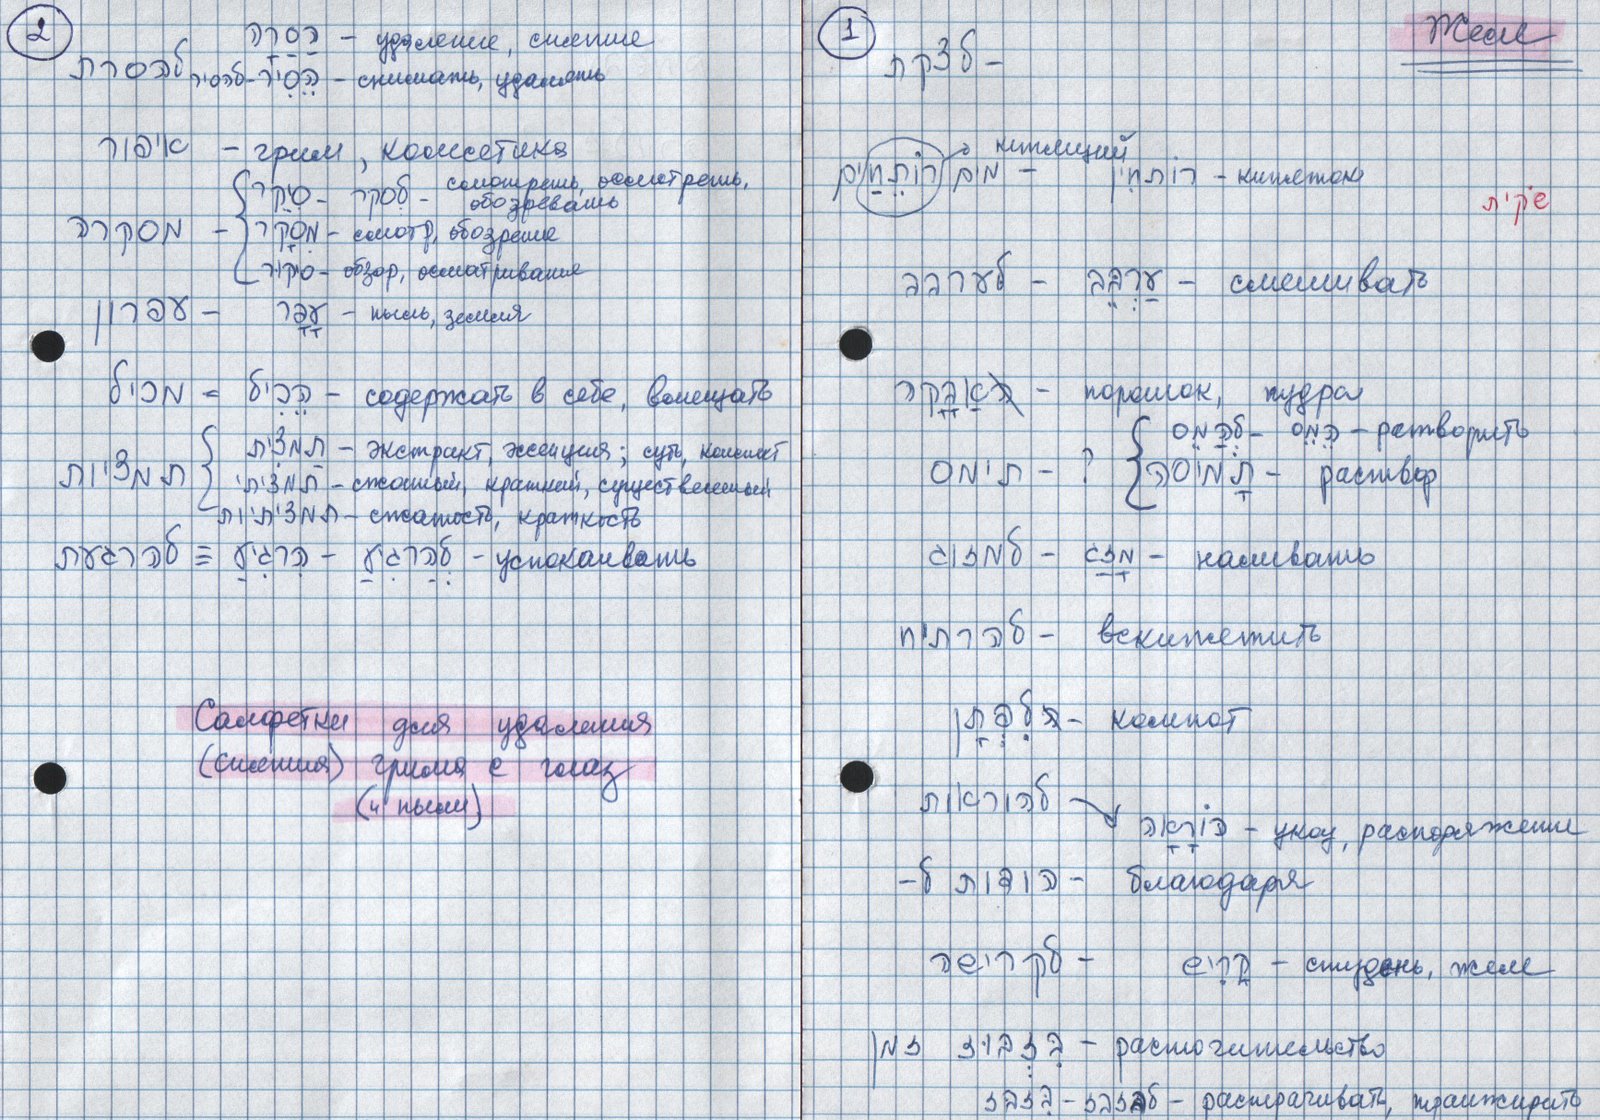 2
הסרה – удаление, снятие
להסרת להסיר – הסיר – снимать, удалять
איפור – грим, косметика
סיקר – לסקר – смотреть, осматривать, обозревать
מסקרה – מסקר – смотр, обозрение
סיקור – обзор, осматривание
עפרון – עפר – пыль, земля
מכיל = הכיל – содержать в себе, вмещать
תמצית – экстракт, эссенция; суть, конспект
תמציות תמציתי – сжатый, краткий, существенный
תמציתיות – сжатость, краткость
להרגעת = הרגיע – להרגיע – успокаивать
Салфетки для удаления
(снятия) грима с глаз
(и пыли)
1
Желе
לצקת –
кипящий
מים רותחים – רותחין – кипяток
שקית
לערבב – ערבב – смешивать
האבקה – порошок, пудра
להמס – המס – растворить
תימס – ? תמיסה – раствор
למזוג – מזג – наливать
להרתיח – вскипятить
הלפתן – компот
להוראות
הוראה – указ, распоряжение
הודות ל– – благодаря
לקרישה – קריש – студень, желе
בזבוז זמן – расточительство
בזבז – לבזבז – растрачивать, транжирить